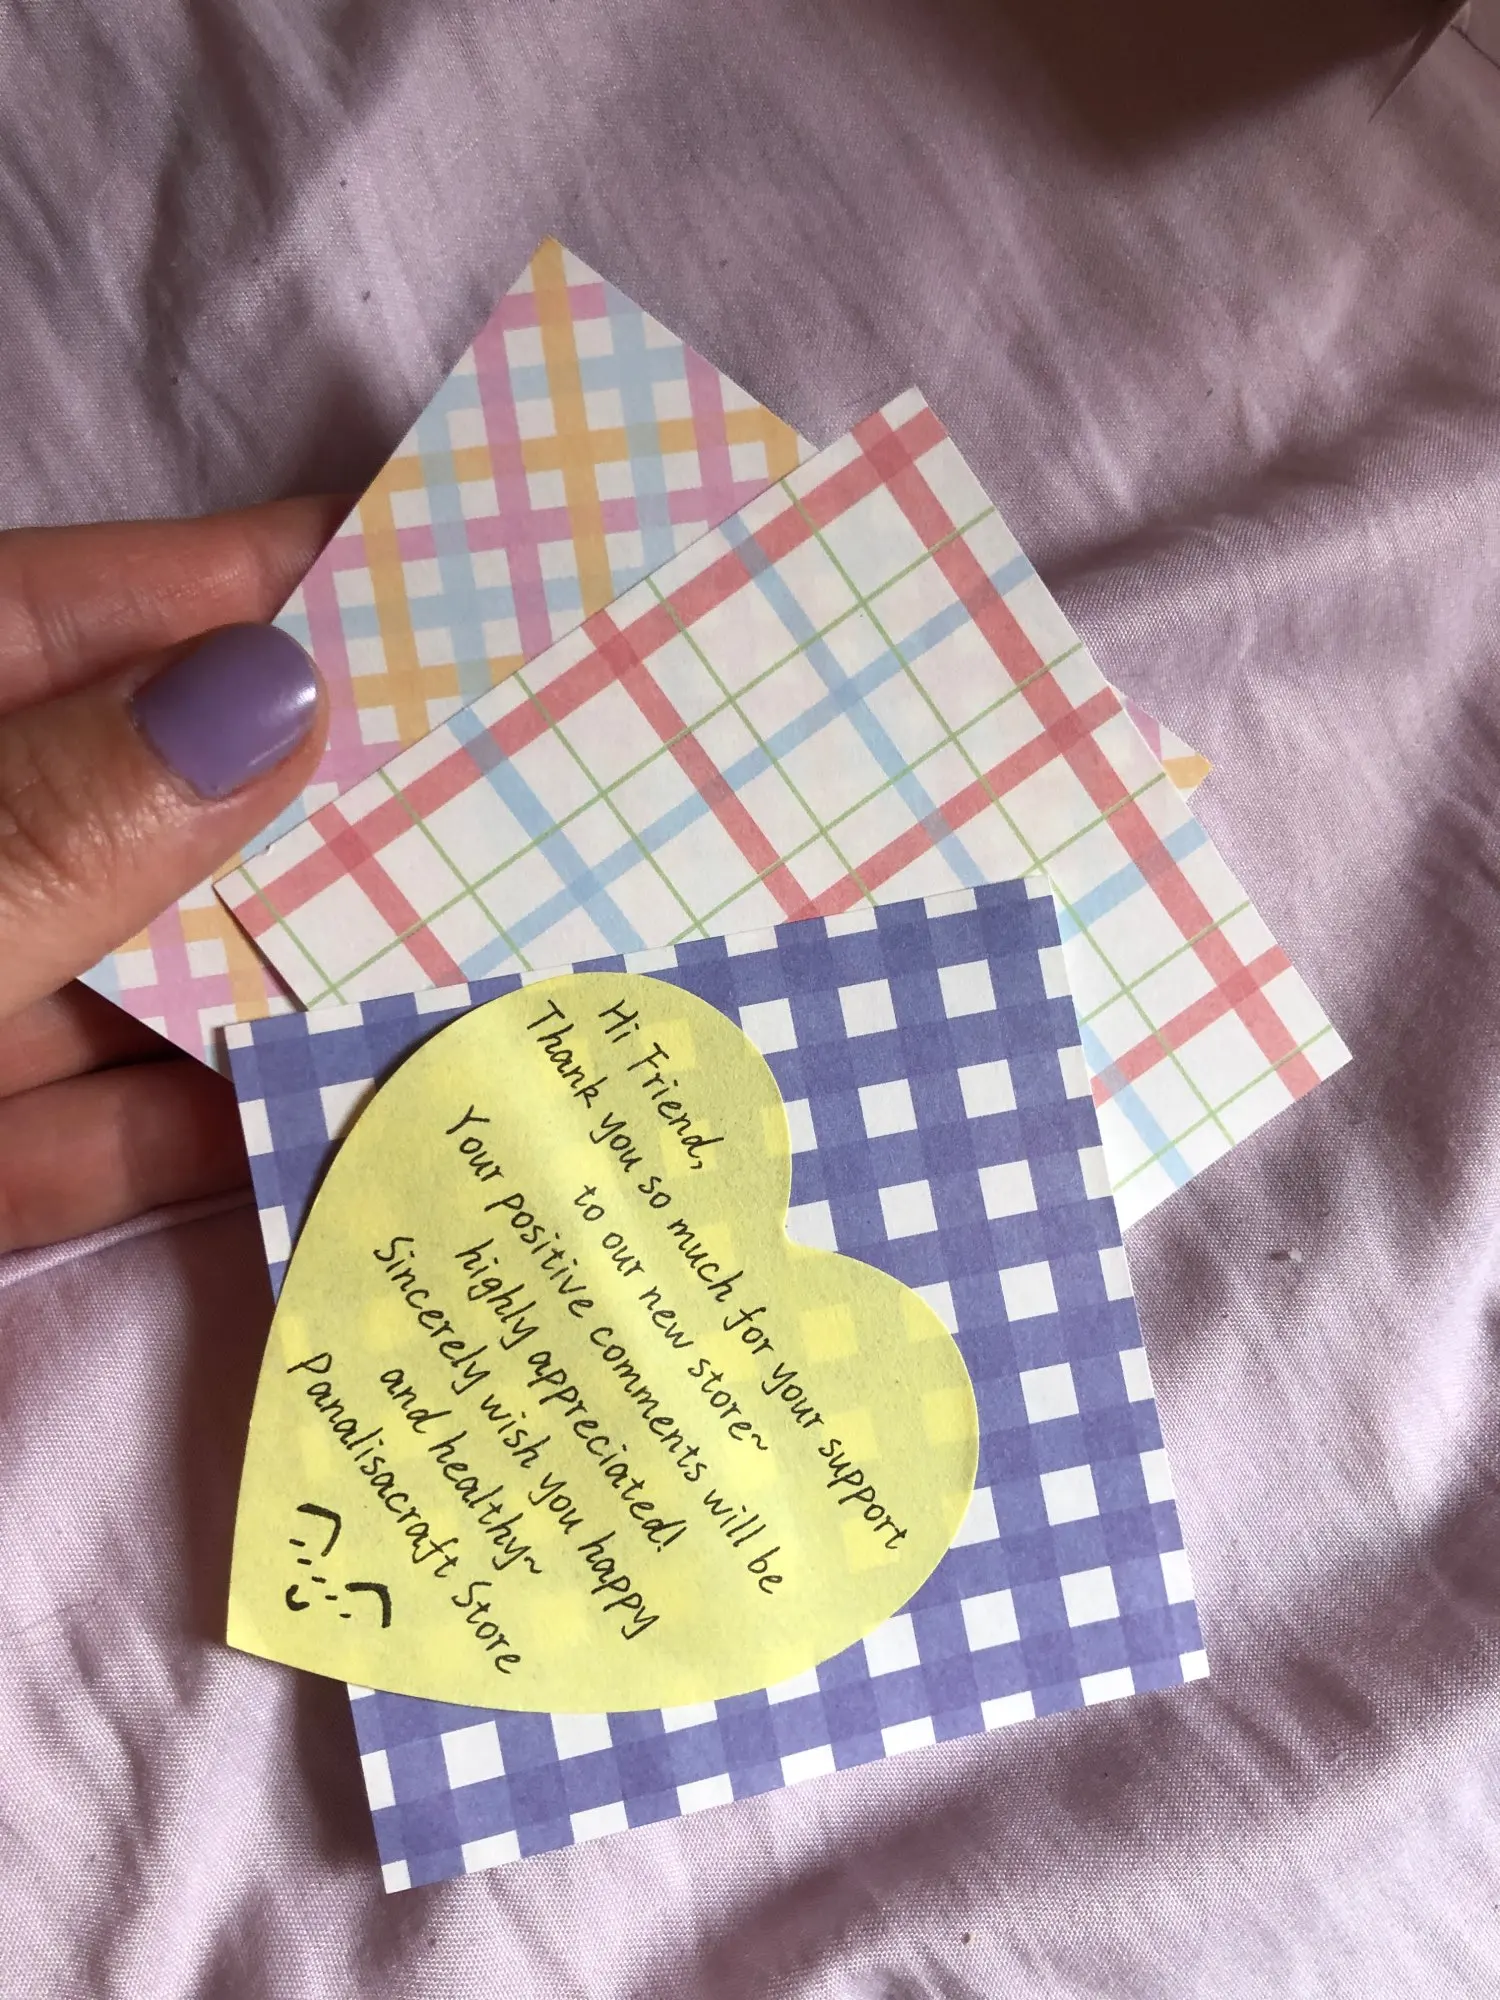 Hi Friend,
Thank you so much for your support
to our new store~
Your positive comments will be
highly appreciated!
Sincerely wish you happy
and healthy~
Panalisacraft Store